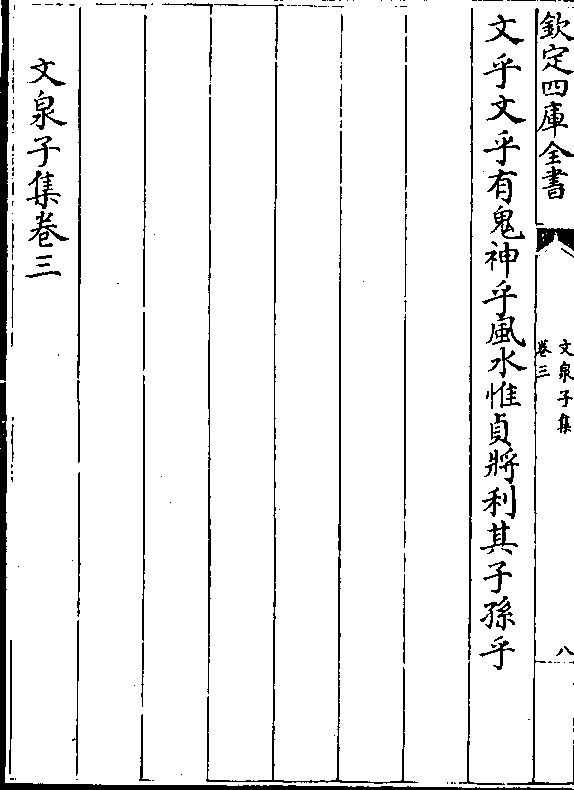 欽定四庫全書
文泉子集
卷三
八
文乎文乎有鬼神乎風水惟貞將利其子孫乎
文泉子集卷三